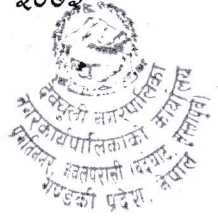 २०७२
देवचुली नगरपालिका
नगर कार्यपालिकाको कार्यालय
प्रगतिनगर, नवलपरासी (बर्दघाट सुस्तापूर्व)
गण्डकी प्रदेश, नेपाल